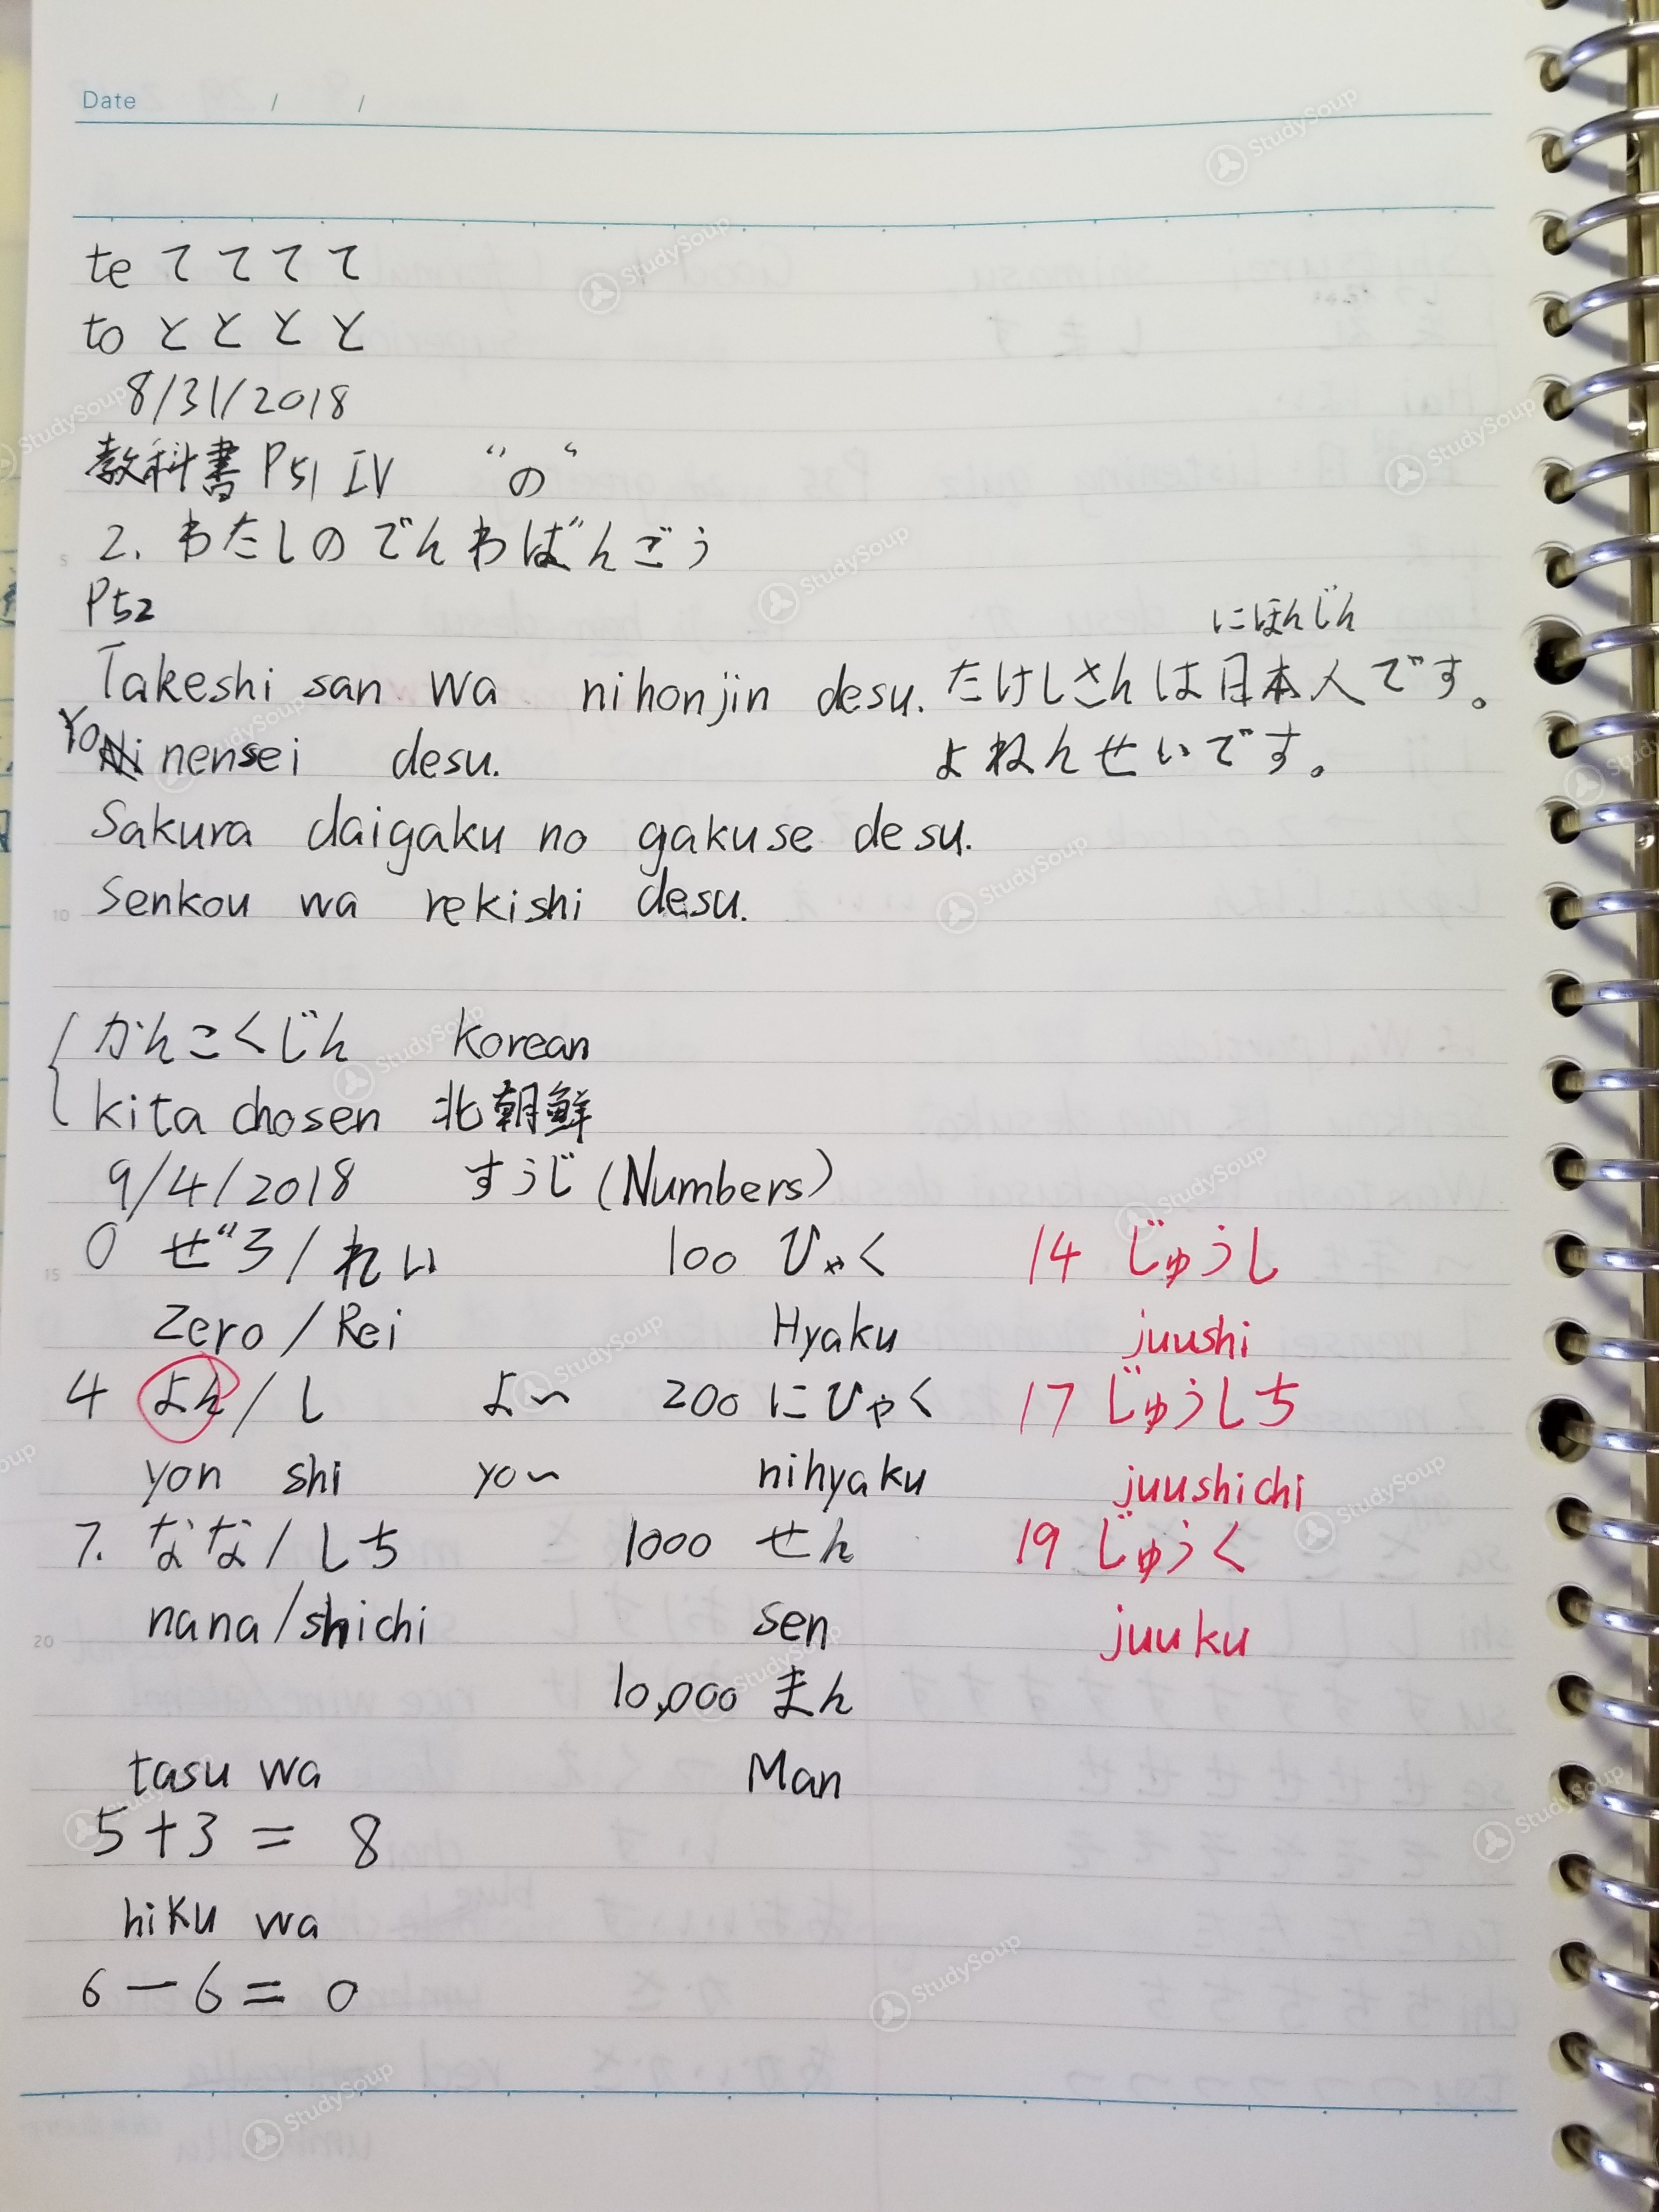 Date / /
te て て て て
to と と と と
8/31/2018
教科書 P51 IV “の“
2. わたしの でんわばんごう
P52
にほんじん
Takeshi san wa nihonjin desu. たけしさんは日本人です。
Yo nensei desu. よねんせいです。
Sakura daigaku no gakuse desu.
Senkou wa rekishi desu.
かんこくじん Korean
kita chosen 北朝鮮
9/4/2018 すうじ (Numbers)
0 ぜろ/れい 100 ひゃく 14 じゅうし
Zero/Rei Hyaku juushi
4 よん/し よ~ 200 にひゃく 17 じゅうしち
yon shi yo~ nihyaku juushichi
7. なな/しち 1000 せん 19 じゅうく
nana/shichi sen juuku
10,000 まん
tasu wa Man
5+3 = 8
hiku wa
6-6 = 0